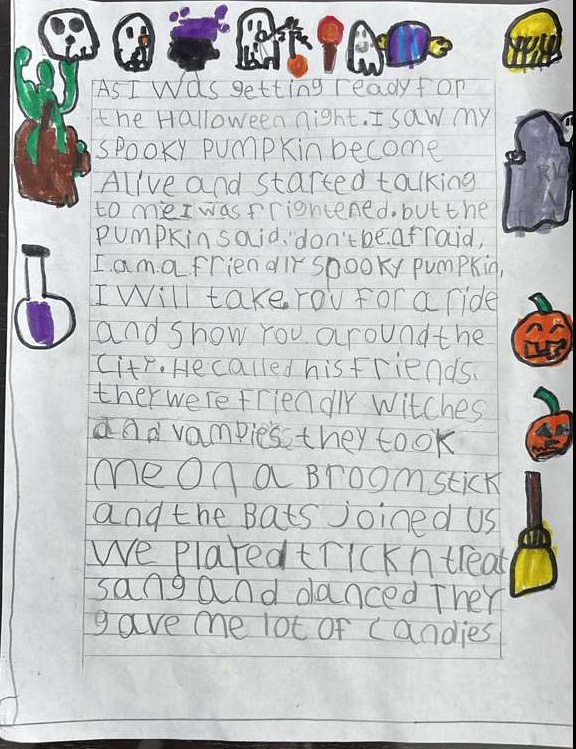 As I was getting ready for
the Halloween night. I saw my
spooky pumpkin become
Alive and started talking
to me I was frightened. but the
pumpkin said. "don't be afraid,
I am a friendly spooky pumpkin,
I will take you for a ride
and show you around the
city. He called his friends.
they were friendly witches
and vampies. they took
me on a Broomstick
and the Bats joined us
We played trick n treat
sang and danced They
gave me lot of candies